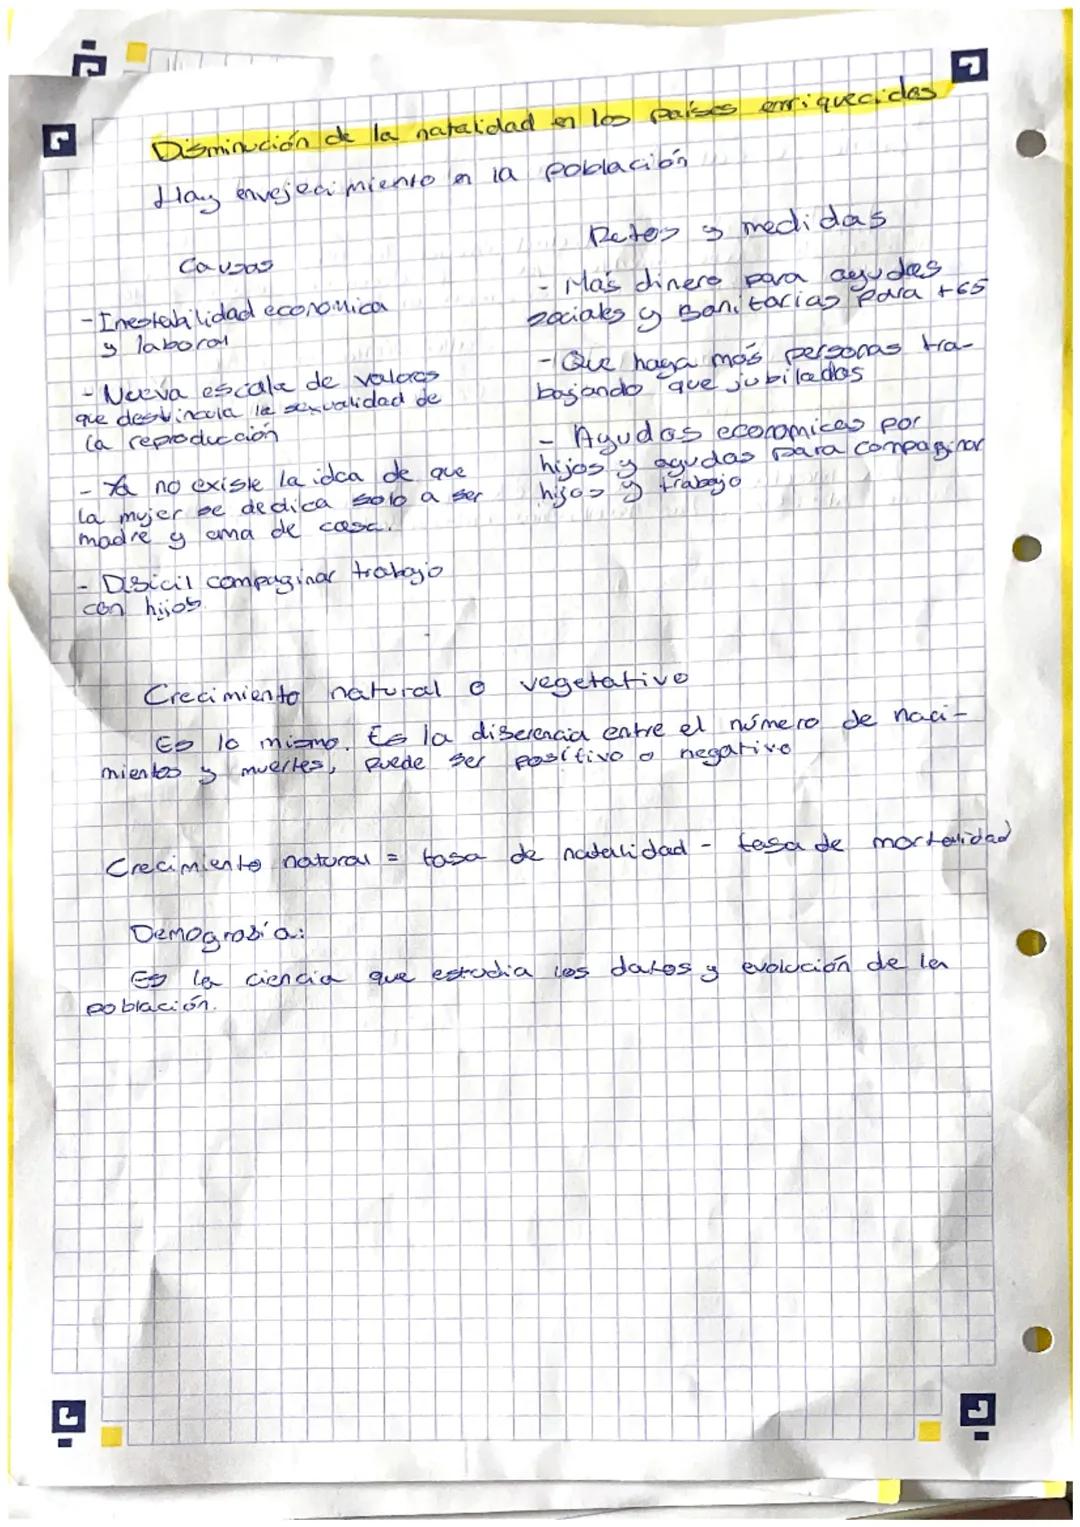 Disminución de la natalidad en los países enriquecidos
Hay envejecimiento en la población
Causas
- Inestabilidad economica
y laboral
- Nueva escala de valores
que desvincula la sexualidad de
la reproducción
- Ya no existe la idea de que
la mujer se dedica solo a ser
madre y ama de casa.
- Dificil compaginar trabajo
con hijos.
Retos y medidas
- Más dinero para ayudas
sociales y sanitarias para +65
- Que haga más personas tra-
bajando que jubilados
- Ayudas economicas por
hijos y ayudas para compaginar
hijos y trabajo
Crecimiento natural o vegetativo
Es lo mismo. Es la diferencia entre el número de naci-
mientos y muertes, puede ser positivo o negativo
Crecimiento natural = tasa de natalidad - tasa de mortalidad
Demografía:
Es la ciencia que estudia los datos y evolución de la
población.